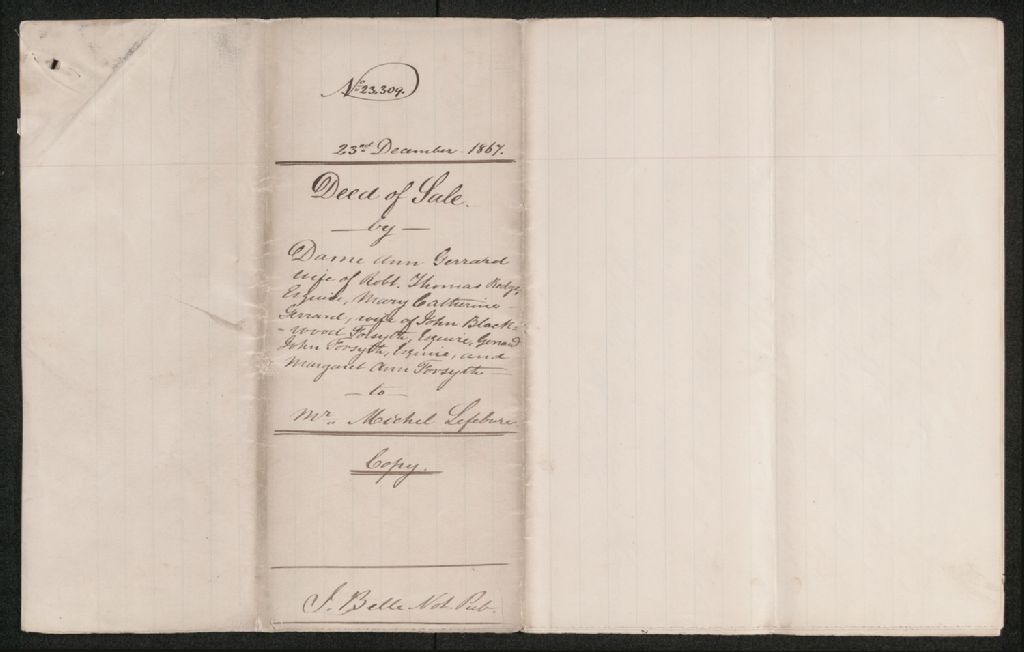 No 23,309.
23rd December 1867.
Deed of Sale.
— by —
Dame Ann Gerrard
wife of Robt. Thomas
Esquire, Mary Catherine
Gerrard, wife of John Black-
-wood Forsyth, Esquire, Gerrard
John Forsyth, Esquire, and
Margaret Ann Forsyth
— to —
Mr. Michel Lefebvre
Copy.
J. Belle Not. Pub.